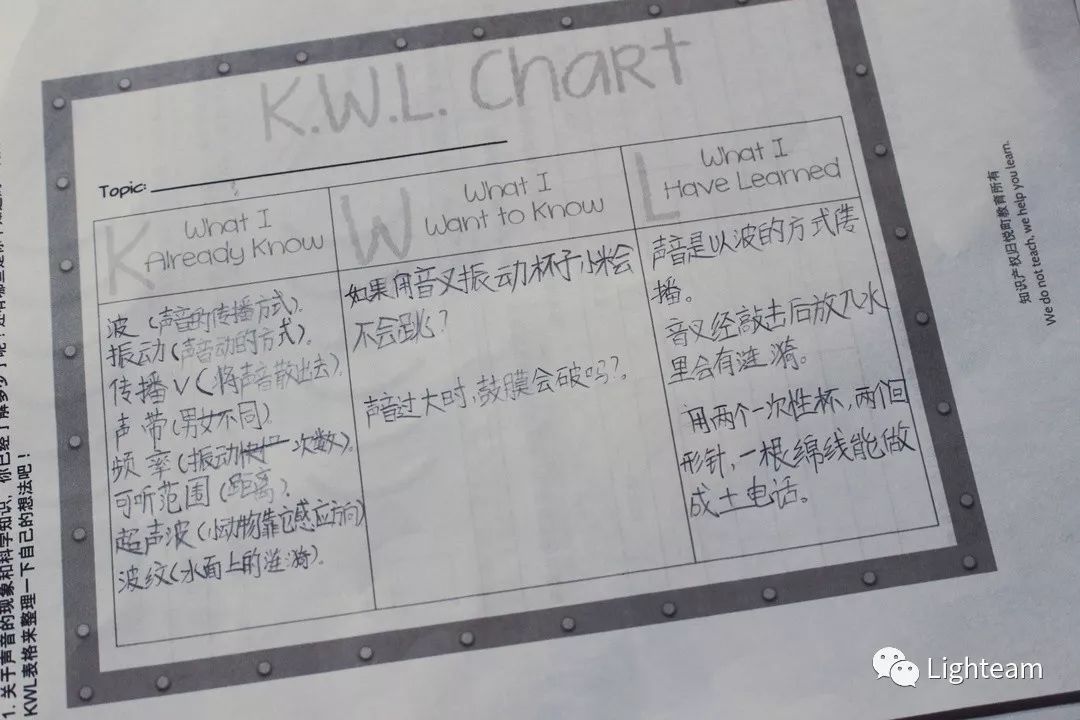 K.W.L. Chart
Topic:
K What I
Already Know
波（声音的传播方式）.
振动（声音动的方式）.
传播V（将声音散出去）.
声带（男女不同）.
频率（振动 次数）.
可听范围（距离）.
超声波（小动物靠它感应方向）
波纹（水面上的涟漪）.
W What I
Want to Know
如果用音叉振动杯子小米会
不会跳？
声音过大时，鼓膜会破吗？.
L What I
Have Learned
声音是以波的方式传
播。
音叉经敲击后放入水
里会有涟漪。
用两个一次性杯，两个回
形针，一根绵线能做
成土电话。
知识产权归悦町教育所有
We do not teach, we help you learn.
1. 关于声音的现象和科学知识，你已经了解多少了呢？还有哪些
KWL表格来整理一下自己的想法吧！
Lighteam